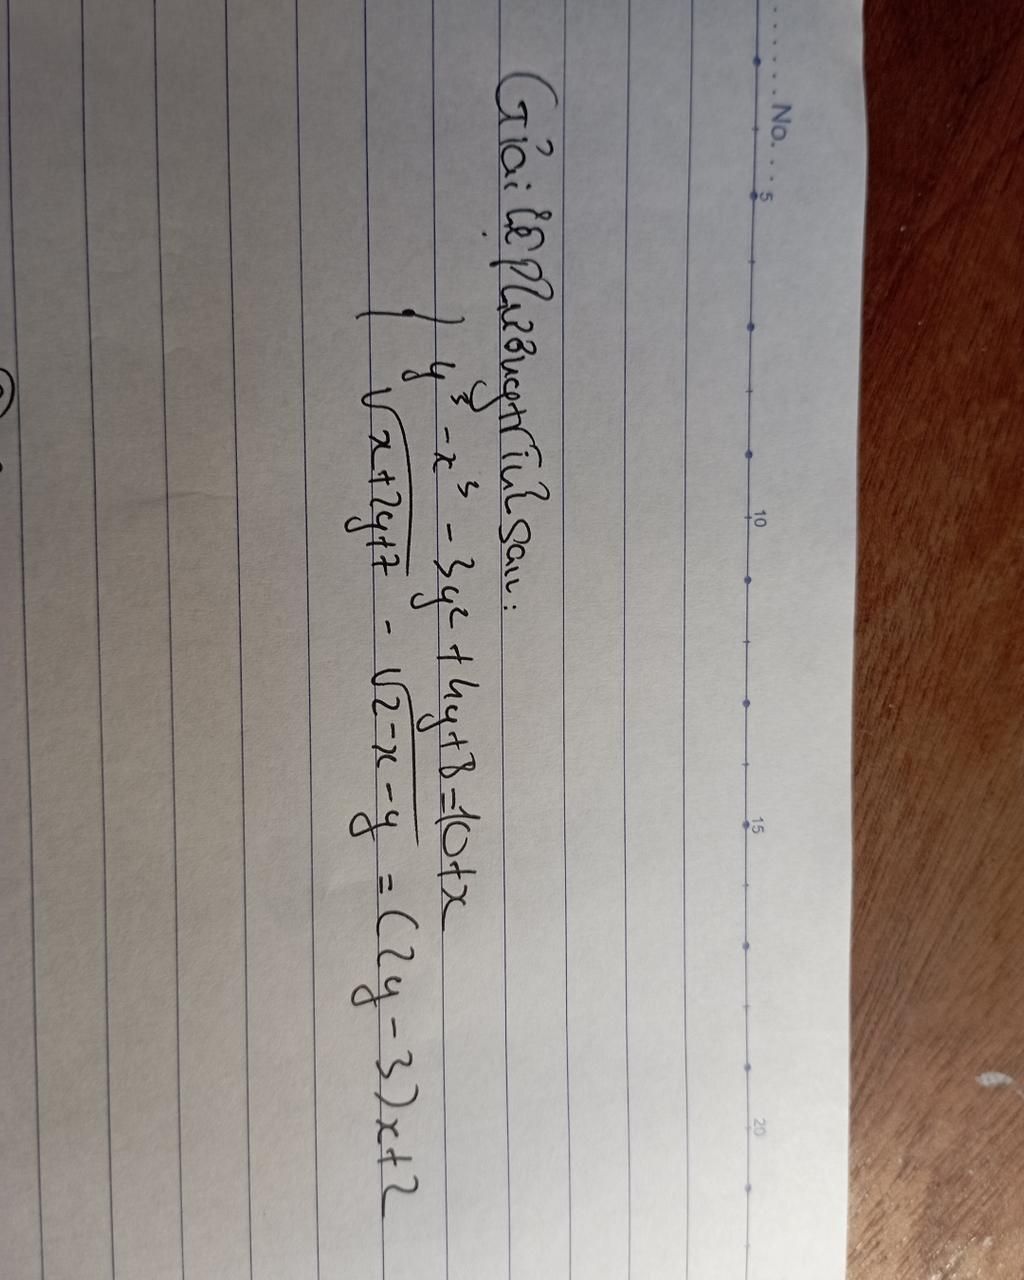 No.
5 10 15 20
Giải hệ phương trình sau:
y³ - x³ - 3y² + 4y + 8 = 10 + x
√(x+2y+7) - √(2-x-y) = (2y-3)x+2